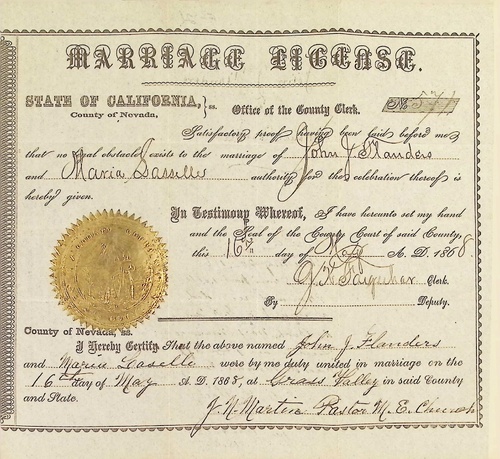 MARRIAGE LICENSE.
STATE OF CALIFORNIA, } ss.
County of Nevada,
Office of the County Clerk.
No 571
Satisfactory proof having been laid before me
that no legal obstacle exists to the marriage of John J. Flanders
and Maria Laselle authority for the celebration thereof is
hereby given.
In Testimony Whereof, I have hereunto set my hand
and the Seal of the County Court of said County,
this 16th day of May A. D. 1868.
Clerk.
By Deputy.
County of Nevada, ss.
I Hereby Certify That the above named John J. Flanders
and Maria Laselle were by me duly united in marriage on the
16th day of May A. D. 1868, at Grass Valley in said County
and State.
J. N. Martin Pastor M. E. Church